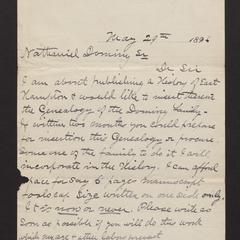 May 29th 189
Nathaniel Dominy Sr
Dr Sir
I am about publishing a History of East
Hampton & would like to insert therein
the Genealogy of the Dominy family
If within two months you could prepare
for insertion this Genealogy or procure
some one of the family to do it I will
incorporate in the History. I can afford
place for say 6 page manuscript
foolscap size written on one side only
It is now or never. Please write as
soon as possible if you will do this work
which my age & other labors prevent